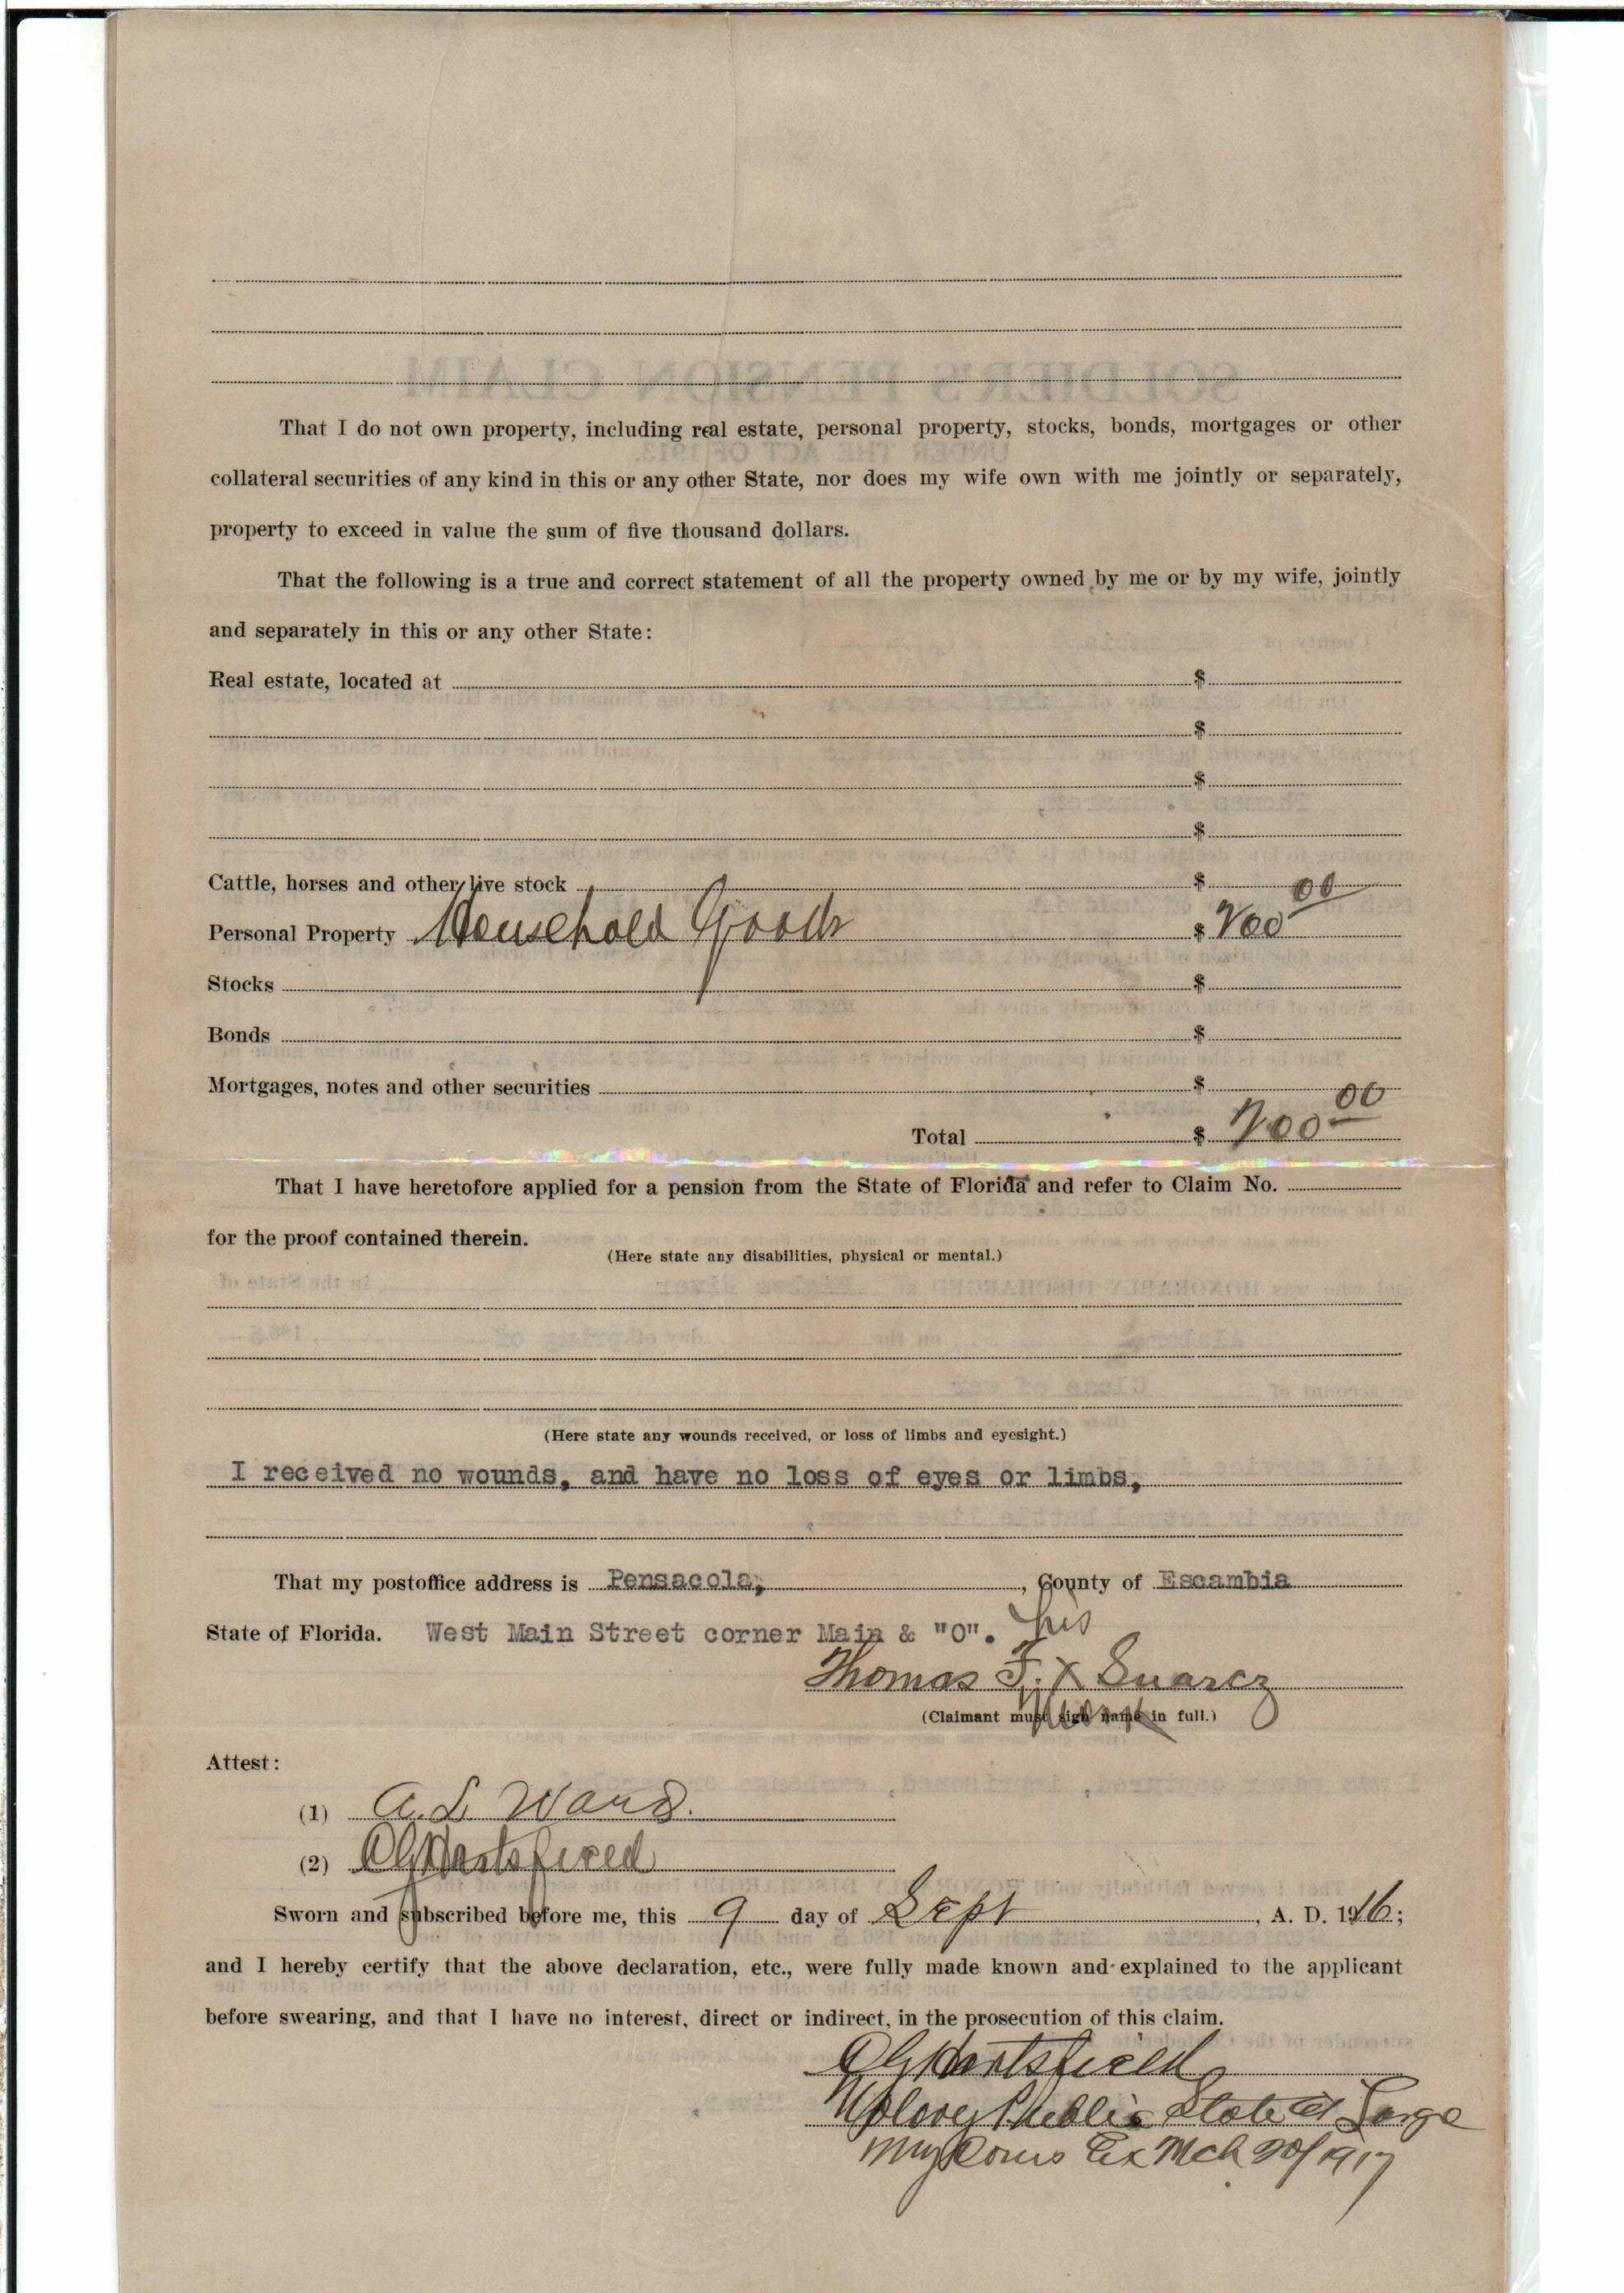 That I do not own property, including real estate, personal property, stocks, bonds, mortgages or other
collateral securities of any kind in this or any other State, nor does my wife own with me jointly or separately,
property to exceed in value the sum of five thousand dollars.
That the following is a true and correct statement of all the property owned by me or by my wife, jointly
and separately in this or any other State:
Real estate, located at $
$
$
$
Cattle, horses and other live stock $
Personal Property Household Goods $ 00
Stocks $
Bonds $
Mortgages, notes and other securities $
Total $ 00
That I have heretofore applied for a pension from the State of Florida and refer to Claim No.
for the proof contained therein.
(Here state any disabilities, physical or mental.)
(Here state any wounds received, or loss of limbs and eyesight.)
I received no wounds, and have no loss of eyes or limbs,
That my postoffice address is Pensacola, , County of Escambia
State of Florida. West Main Street corner Main & "O". his
Thomas F. X Suarez
(Claimant must sign name in full.) mark
Attest:
(1) A. L. Ward.
(2) Hartsfield
Sworn and subscribed before me, this 9 day of Sept , A. D. 1916;
and I hereby certify that the above declaration, etc., were fully made known and explained to the applicant
before swearing, and that I have no interest, direct or indirect, in the prosecution of this claim.
Hartsfield
Notary Public State at Large
My Coms Ex Mch 20/1917